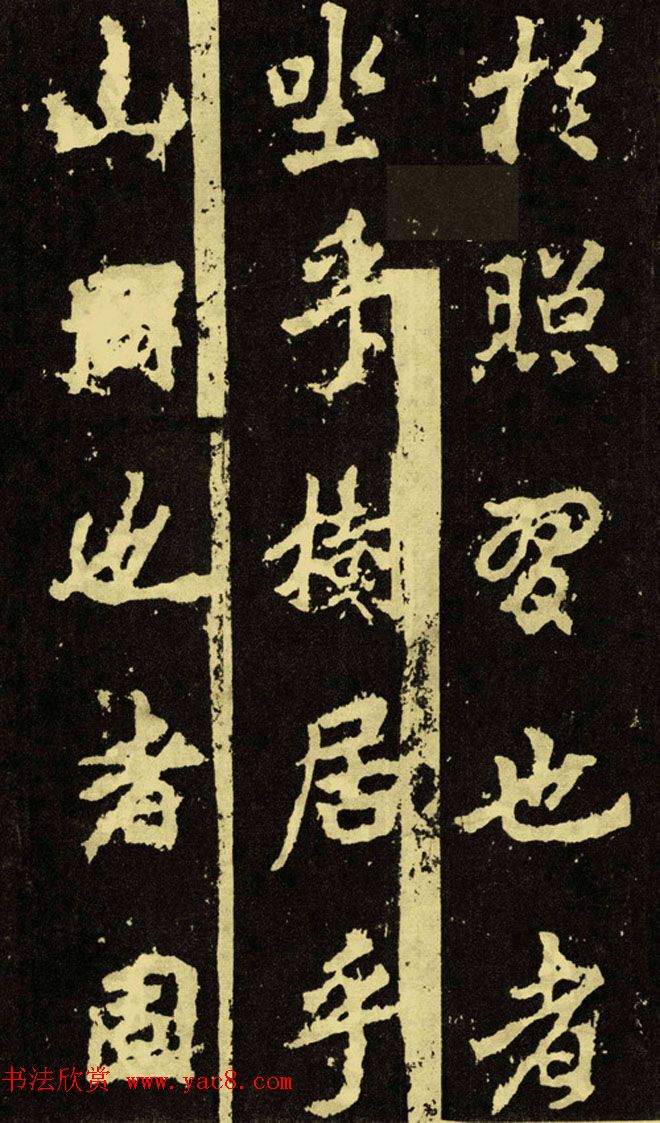 於照習也者
坐乎樹居乎
山也者
书法欣赏 www.yac8.com